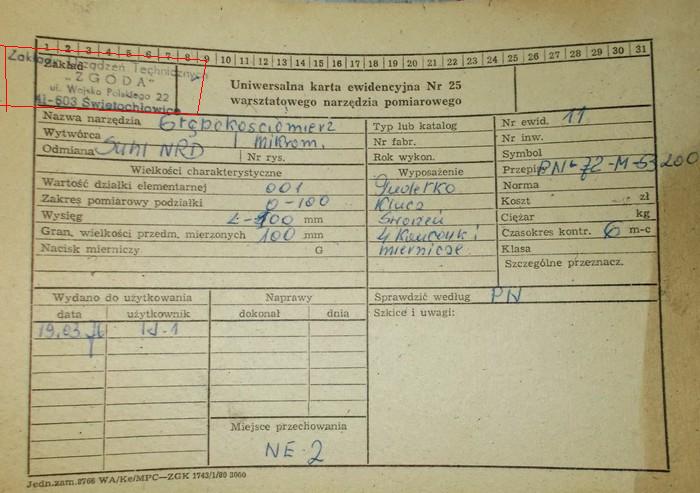 1 2 3 4 5 6 7 8 9 10 11 12 13 14 15 16 17 18 19 20 21 22 23 24 25 26 27 28 29 30 31
Zakład Urządzeń Technicznych
Zakład
„ZGODA"
ul. Wojska Polskiego 22
41-603 Świętochłowice
Uniwersalna karta ewidencyjna Nr 25
warsztatowego narzędzia pomiarowego
Nazwa narzędzia Głębokościomierz
Wytwórca Mikrom.
Odmiana Suhl NRD Nr rys.
Wielkości charakterystyczne
Wartość działki elementarnej 001
Zakres pomiarowy podziałki 0-100
Wysięg L-100 mm
Gran. wielkości przedm. mierzonych 100 mm
Nacisk mierniczy G
Typ lub katalog
Nr fabr.
Rok wykon.
Wyposażenie
Pudełko
Klucz
4 Końcówki
miernicze
Nr ewid. 11
Nr inw.
Symbol
Przepis PN-72-M-53200
Norma
Koszt zł
Ciężar kg
Czasokres kontr. 6 m-c
Klasa
Szczególne przeznacz.
Wydano do użytkowania
data użytkownik
19.03
Naprawy
dokonał dnia
Miejsce przechowania
NE-2
Sprawdzić według PN
Szkice i uwagi:
Jedn.zam.8766 WA/Ke/MPC—ZGK 1743/1/80 3000